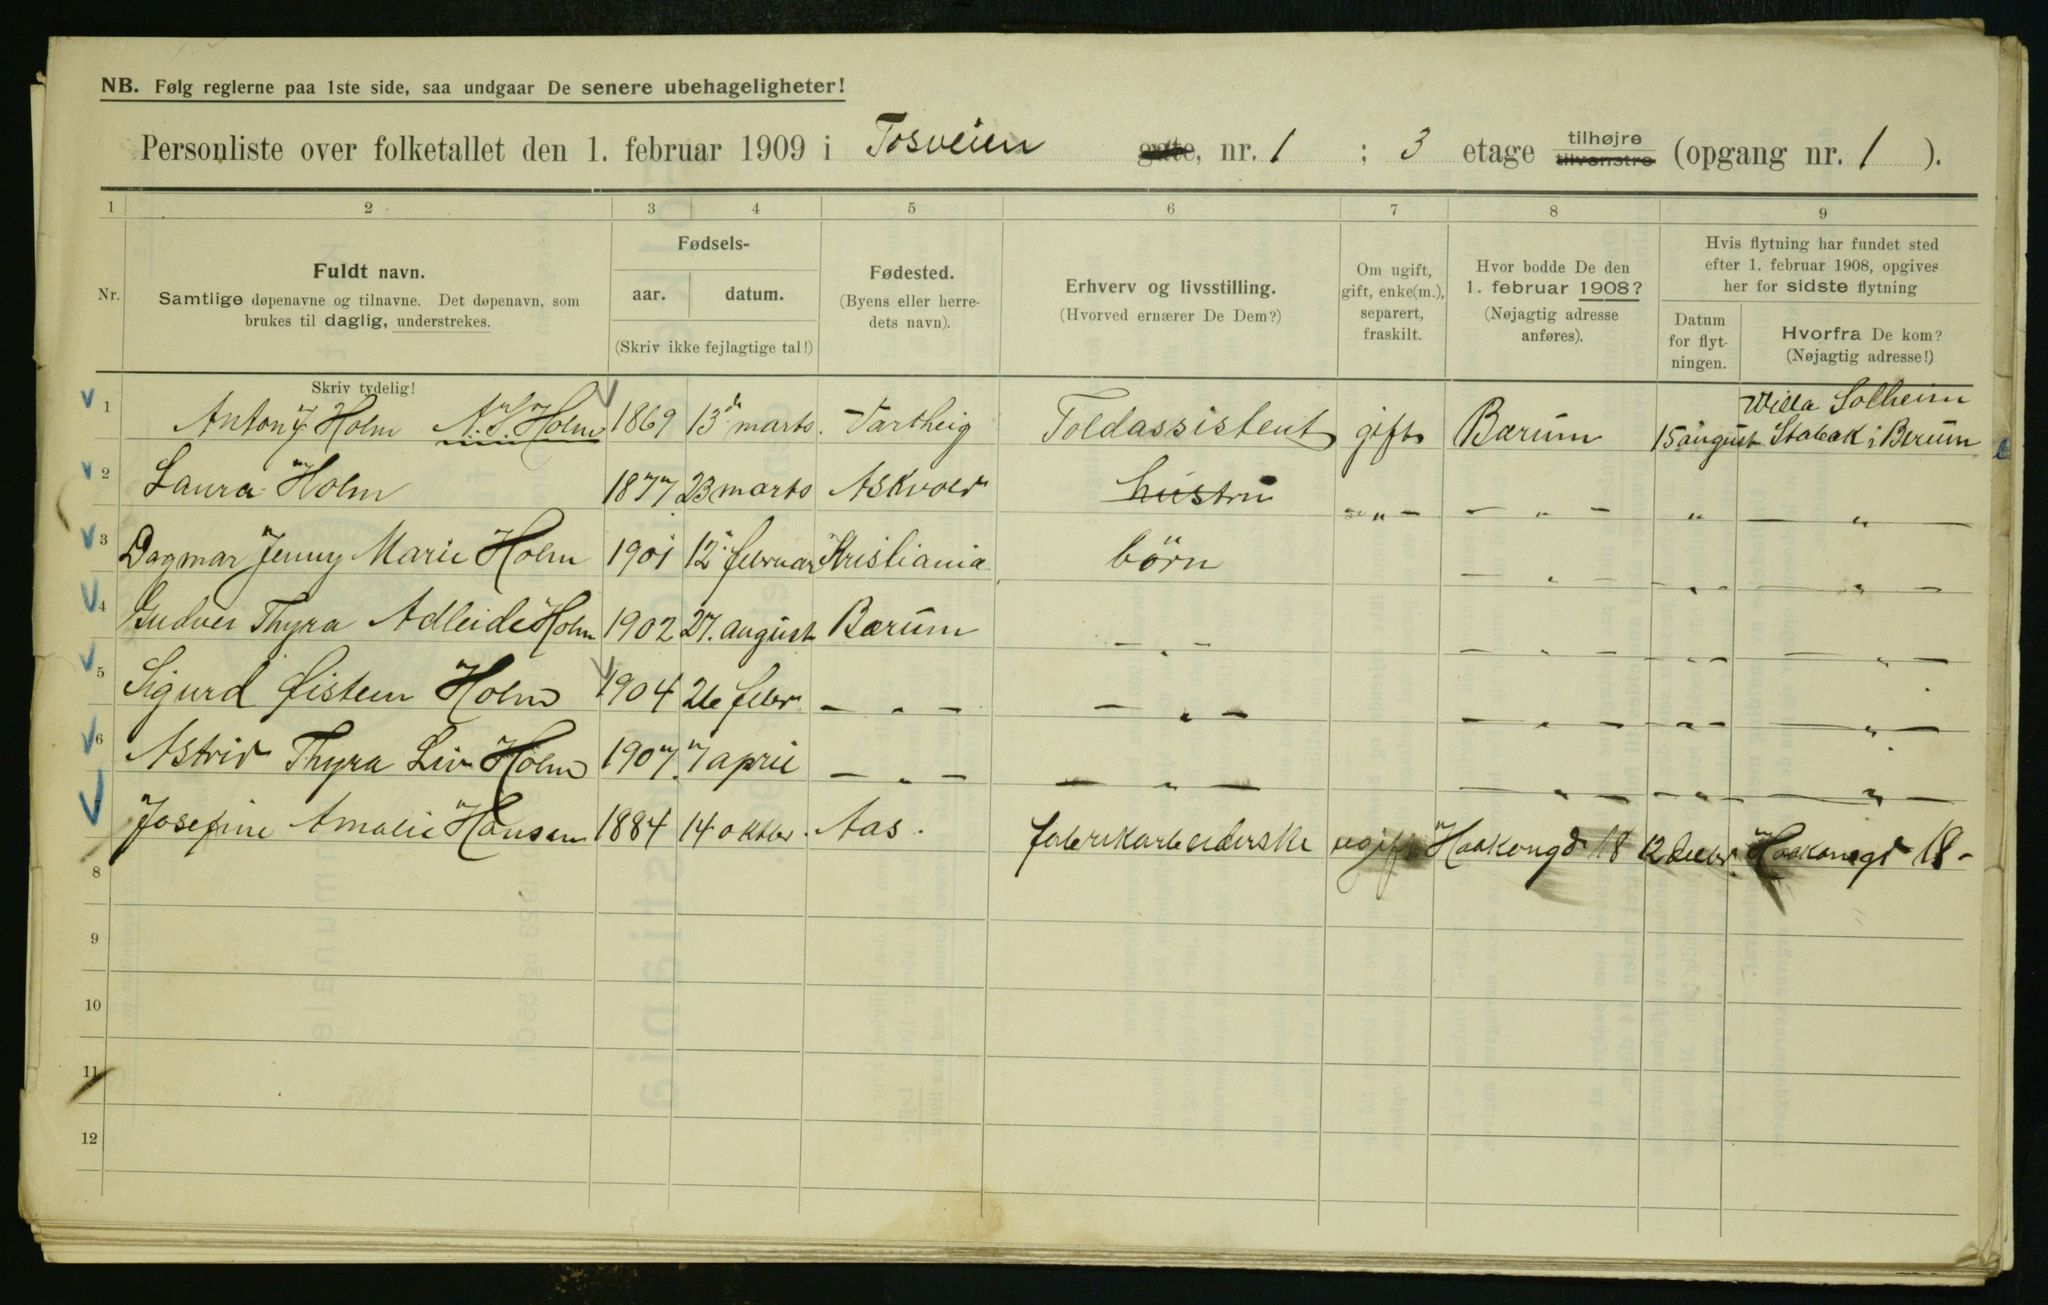 NB. Følg reglerne paa 1ste side, saa undgaar De senere ubehageligheter!
Personliste over folketallet den 1. februar 1909 i Tosveien gate, nr. 1 ; 3 etage tilhøjre tilvenstre (opgang nr. 1 ).
1 2 3 4 5 6 7 8 9
Nr.
Fuldt navn.
Samtlige døpenavne og tilnavne. Det døpenavn, som
brukes til daglig, understrekes.
Fødsels-
aar. datum.
(Skriv ikke fejlagtige tal!)
Fødested.
(Byens eller herre-
dets navn).
Erhverv og livsstilling.
(Hvorved ernærer De Dem?)
Om ugift,
gift, enke(m.),
separert,
fraskilt.
Hvor bodde De den
1. februar 1908?
(Nøjagtig adresse
anføres).
Hvis flytning har fundet sted
efter 1. februar 1908, opgives
her for sidste flytning
Datum
for flyt-
ningen.
Hvorfra De kom?
(Nøjagtig adresse!)
Skriv tydelig!
Willa Solheim
1 Anton J. Holm A. J. Holm 1869 13de marts. Vartheig Toldassistent gift Bærum 15 august Stabak i Berum
2 Laura Holm 1877 23 marts Askvold hustru - " - - " - " - " -
3 Dagmar Jenny Marie Holm 1901 12 februar Kristiania børn - " - - " - - " -
4 Thyra Adleide Holm 1902 27. august Bærum - " - - " - - " - - " -
5 Sigurd Øistein Holm 1904 26 febr - " - - " - - " - - " - - " -
6 Astrid Thyra Liv Holm 1907. 7 april - " - - " - - " - - " - - " -
Josefine Amalie Hansen 1884 14 oktbr. Aas. fabrikarbeiderske ugift Haakongd 18 12 Haakongd 18 -
8
9
10
11
12